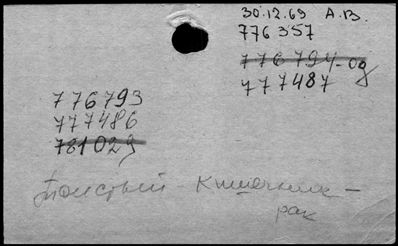 30.12.69 А.В.
776357
776794-од
777487
776793
777486
781029
Толстый - Кишечник -
рак